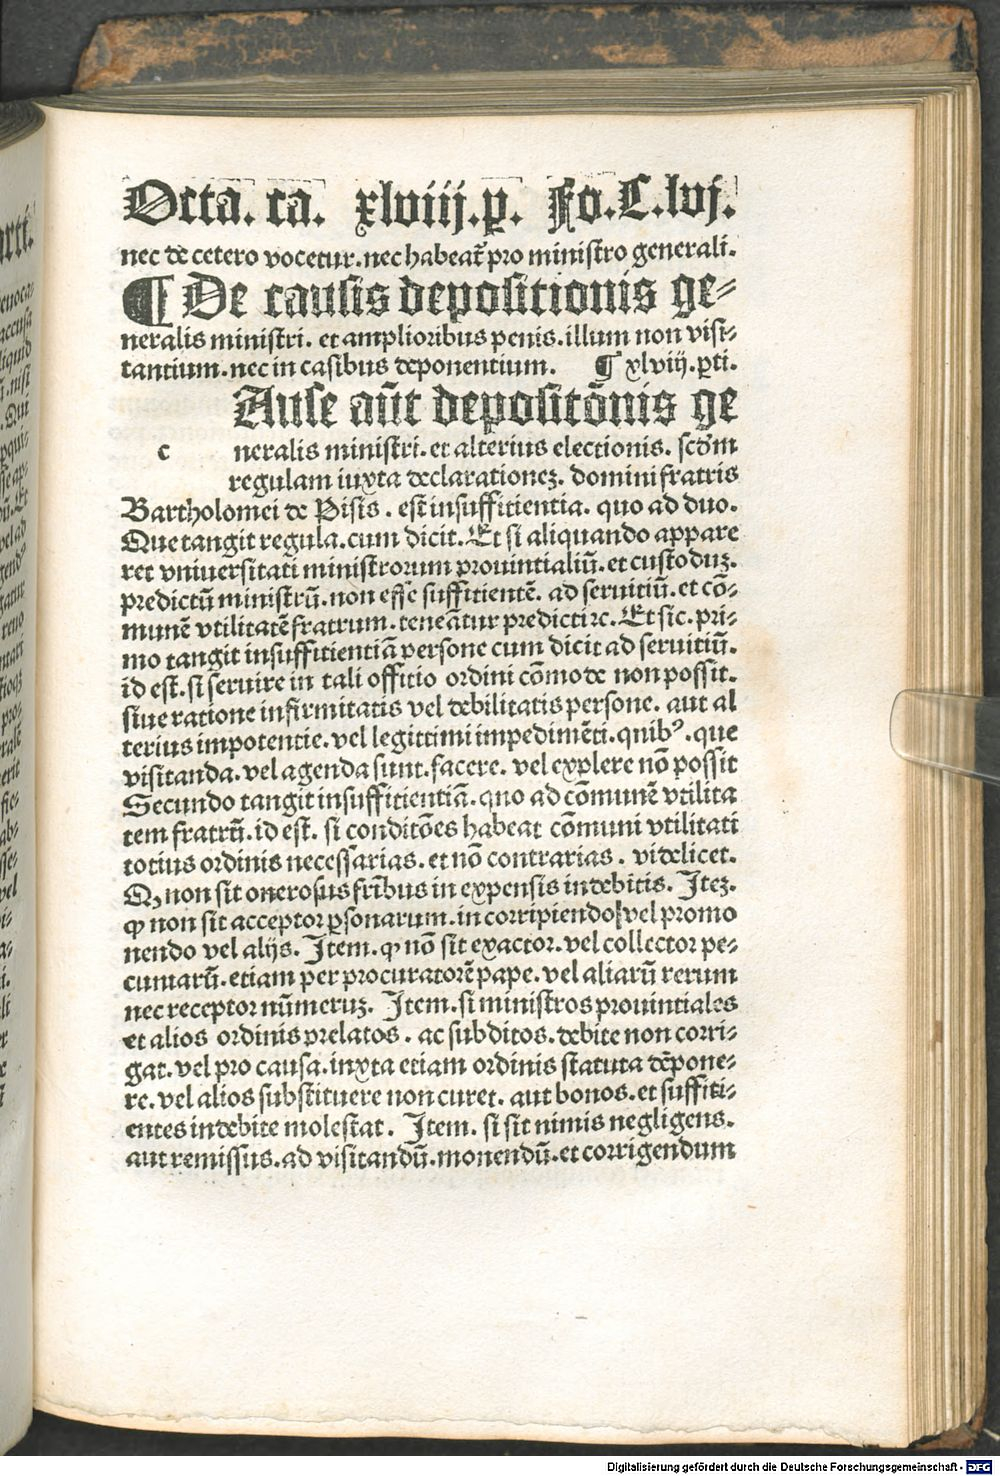 Octa. ca. xlviij. ꝑ. Fo. C. lvj.
nec de cetero vocetur. nec habeat᷑ pro ministro generali.
¶ De causis depositionis ge⸗
neralis ministri. et amplioribus penis. illum non visi⸗
tantium. nec in casibus deponentium. ¶ xlviij. ꝑti.
Ause aūt depositōnis ge
c neralis ministri. et alterius electionis. scd̄m
regulam iuxta declarationeꝫ. domini fratris
Bartholomei de Pisis. est insuffitientia. quo ad duo.
Que tangit regula. cum dicit. Et si aliquando appare
ret vniuersitati ministrorum prouintialiū. et custoduꝫ.
predictū ministrū. non esse suffitientē. ad seruitiū. et cō⸗
munē vtilitatē fratrum. teneātur predicti ⁊c. Et sic. pri⸗
mo tangit insuffitientiā persone cum dicit ad seruitiū.
id est. si seruire in tali offitio ordini cōmode non possit.
siue ratione infirmitatis vel debilitatis persone. aut al
terius impotentie. vel legittimi impedimēti. quibꝰ. que
visitanda. vel agenda sunt. facere. vel explere nō possit
Secundo tangit insuffitientiā. quo ad cōmunē vtilita
tem fratrū. id est. si conditōes habeat cōmuni vtilitati
totius ordinis necessarias. et nō contrarias. videlicet.
Qꝫ non sit onerosus fr̄ibus in expensis indebitis. Iteꝫ.
ꝙ non sit acceptor ꝑsonarum. in corripiendo vel promo
nendo vel alijs. Item. ꝙ nō sit exactor. vel collector pe⸗
cuniarū. etiam per procuratorē pape. vel aliarū rerum
nec receptor nūmeruꝫ. Item. si ministros prouintiales
et alios ordinis prelatos. ac subditos. debite non corri⸗
gat. vel pro causa. iuxta etiam ordinis statuta dēpone⸗
re. vel alios substituere non curet. aut bonos. et suffiti⸗
entes indebite molestat. Item. si sit nimis negligens.
aut remissus. ad visitandū. monendū. et corrigendum
Digitalisierung gefördert durch die Deutsche Forschungsgemeinschaft - DFG